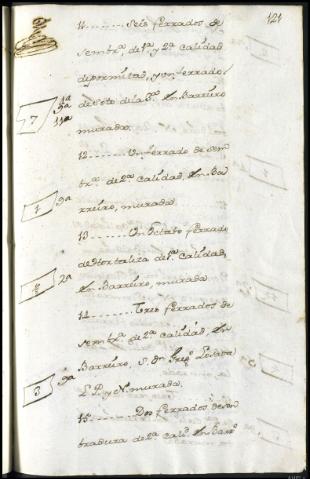 121
11........Seis ferrados de
sembrª. de 1ª y 2ª calidad
de permitas, y un ferrado
de soto de la 3ª. En Barreiro
murados.
7 1ª
3ª
11ª
12........Un ferrado de sem
brª. de 2ª. calidad, En Ba
rreiro, murada
1 9ª
13........Un Octabo ferrado
de Hortaliza de 1ª. calidad,
En Barreiro, murada
2ª
14........Tres ferrados de
sembrª. de 2ª calidad, En
Barreiro, S. Dn
L. P. y N. murada.
3 9ª
15........Dos ferrados de sem
bradura de 2ª calid. En Barrº